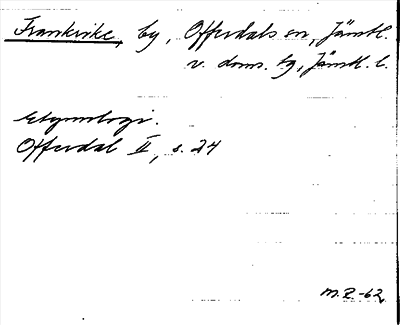 Frankrike, by, Offerdals sn, Jämtl.
v. doms. tg, Jämtl. l.
Etymologi.
Offerdal II, s. 24
M.Z.-62